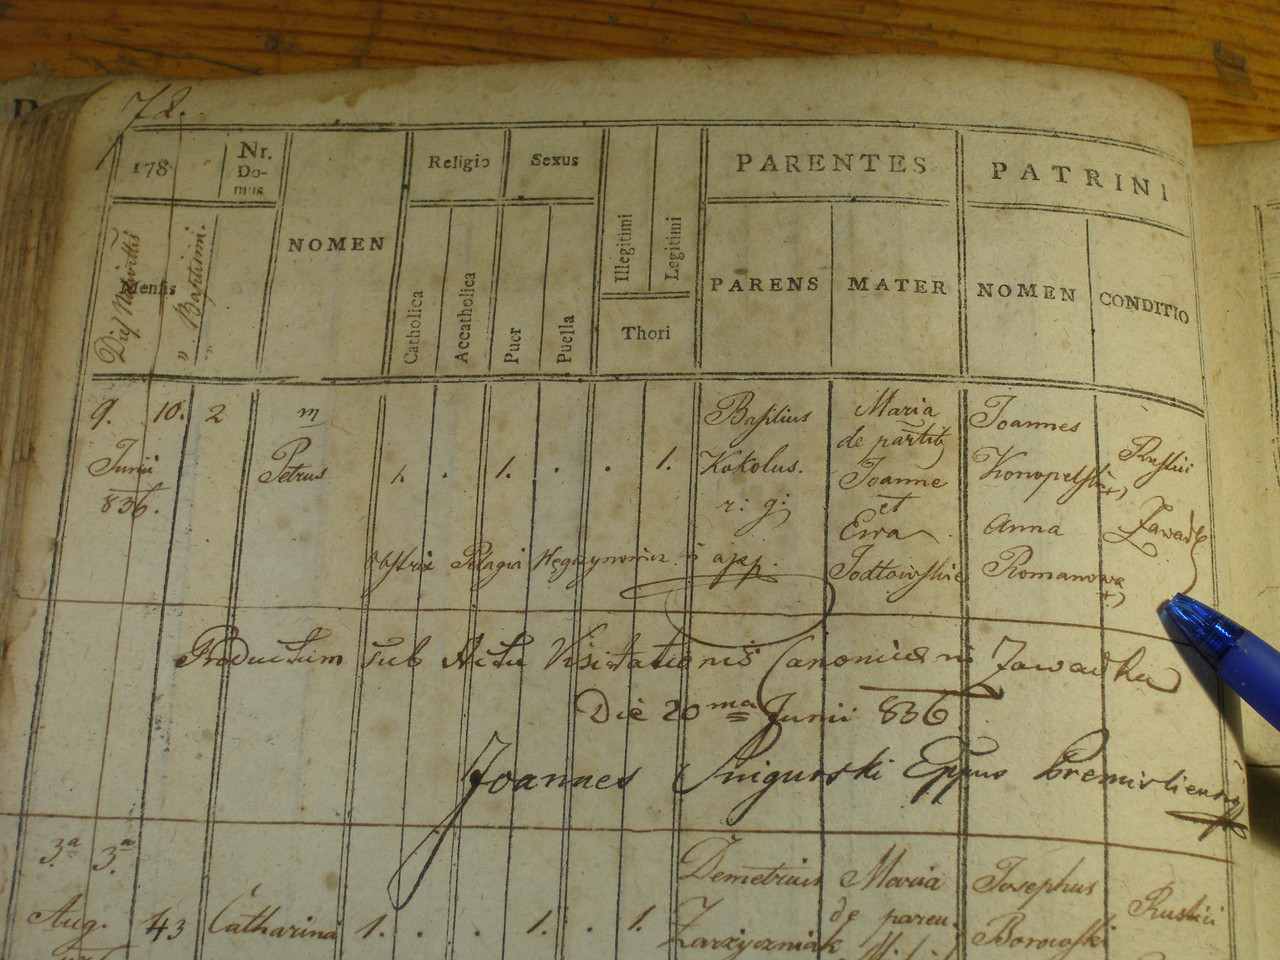 72.
178
Nr. Domus
NOMEN
Religio
Sexus
Illegitimi
Legitimi
PARENTES
PATRINI
Dies Nativitis
Mensis
" Baptismi.
Catholica
Accatholica
Puer
Puella
Thori
PARENS
MATER
NOMEN
CONDITIO
9. 10. 2 m Basilius Maria Joannes
de partib
Junii Petrus 1. . 1. . . 1. Kokolus. Joanne Konopelski Rustici
836. r: g: et
Ewa Anna Zawadka
Obstrix Pelagia app. Jodłowskie Romanowa
Productum sub Actu Visitationis Canonicæ in Zawadka
Die 20ma Junii 836
Joannes Snigurski Eppus Premisliensis
3a 3a Demetrius Maria Josephus
Aug. 43 Catharina 1. . . 1. . 1. de paren. Rustici
Zarzyczniak Borowski